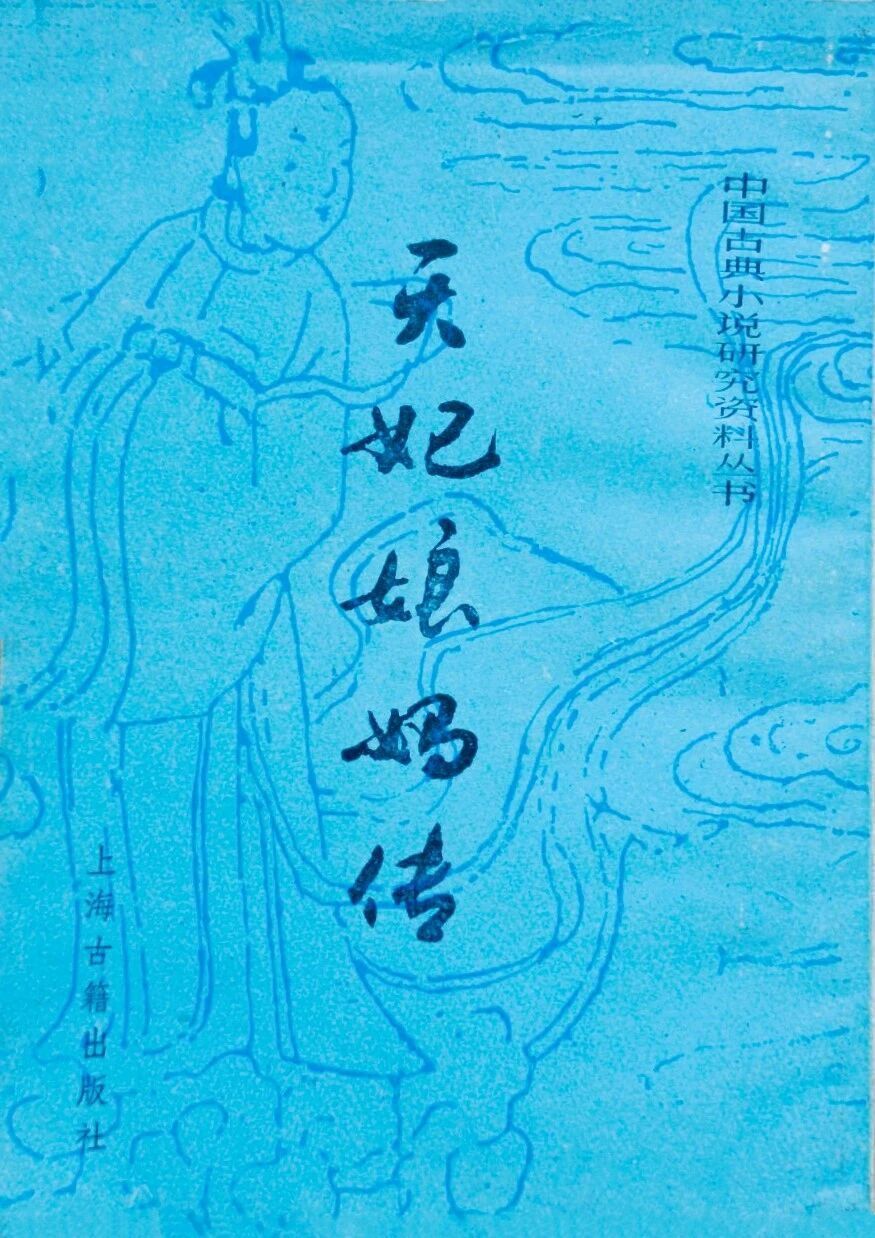 中国古典小说研究资料丛书
天妃娘妈传
上海古籍出版社